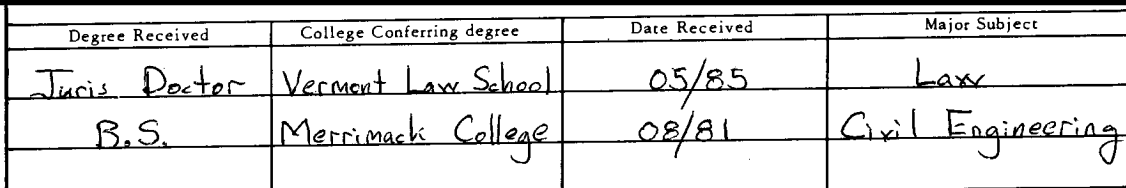 Degree Received College Conferring degree Date Received Major Subject
Juris Doctor Vermont Law School 05/85 Law
B.S. Merrimack College 08/81 Civil Engineering